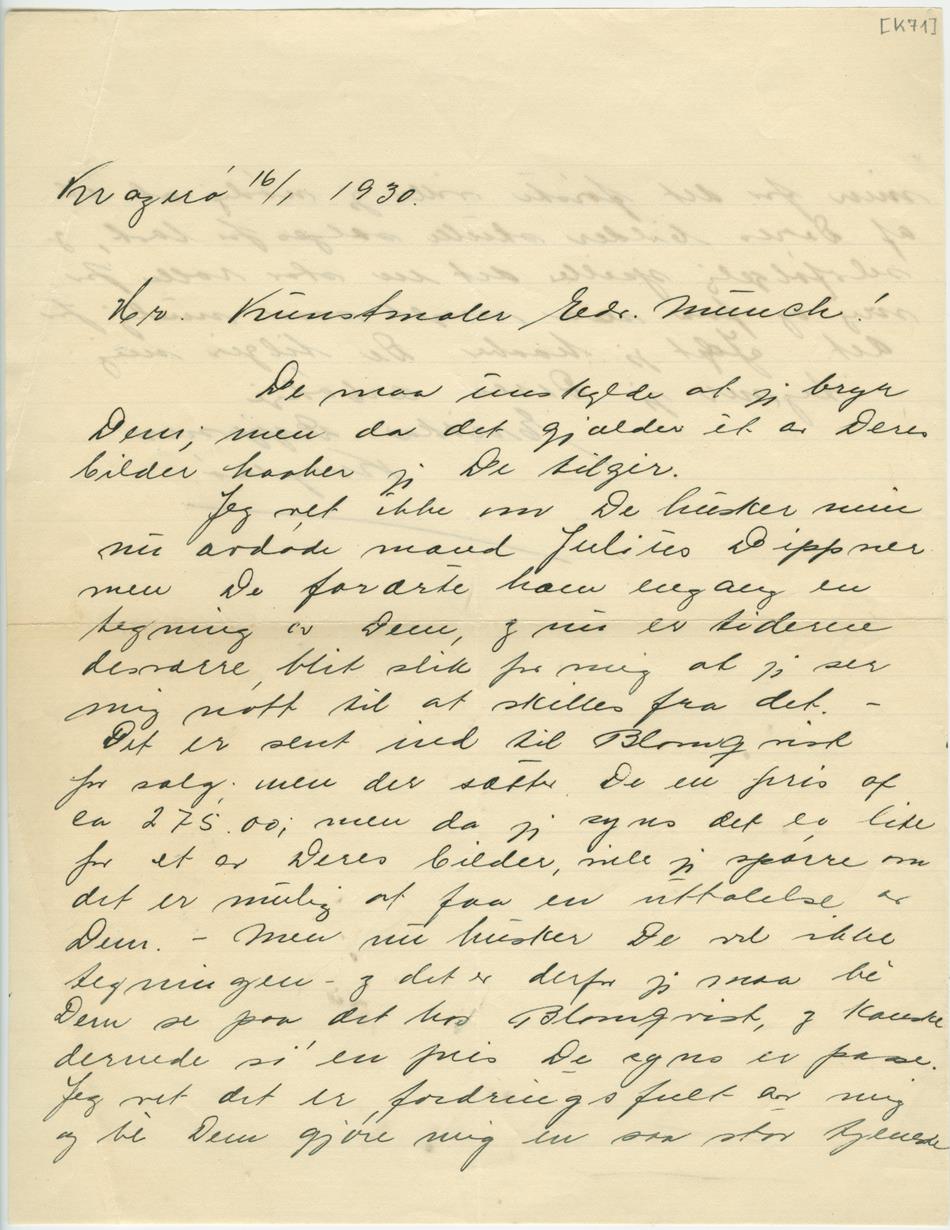 [K71]
Kragerø 16/1 1930.
Hr. Kunstmaler Edv. Munch!
De maa unskylde at jeg bryr
Dem; men da det gjælder et av Deres
bilder haaber jeg De tilgir.
Jeg vet ikke om De husker min
nu avdøde mand Julius Dippner
men De forærte ham engang en
tegning av Dem, og nu er tiderne
desværre, blit slik for mig at jeg ser
mig nøtt til at skilles fra det. –
Det er sent ind til Blomqvist
for salg. men der sætter De en pris af
ca 275.00; men da jeg syns det er lite
for et av Deres bilder, vile jeg spørre om
det er mulig at faa en uttalelse av
Dem. – Men nu husker De vel ikke
tegningen – og det er derfor jeg maa bé
Dem se paa det hos Blomqvist, og kanske
dernede si' en pris De syns er passe.
Jeg vet det er fordringsfult av mig
og bé Dem gjøre mig en saa stor tjeneste